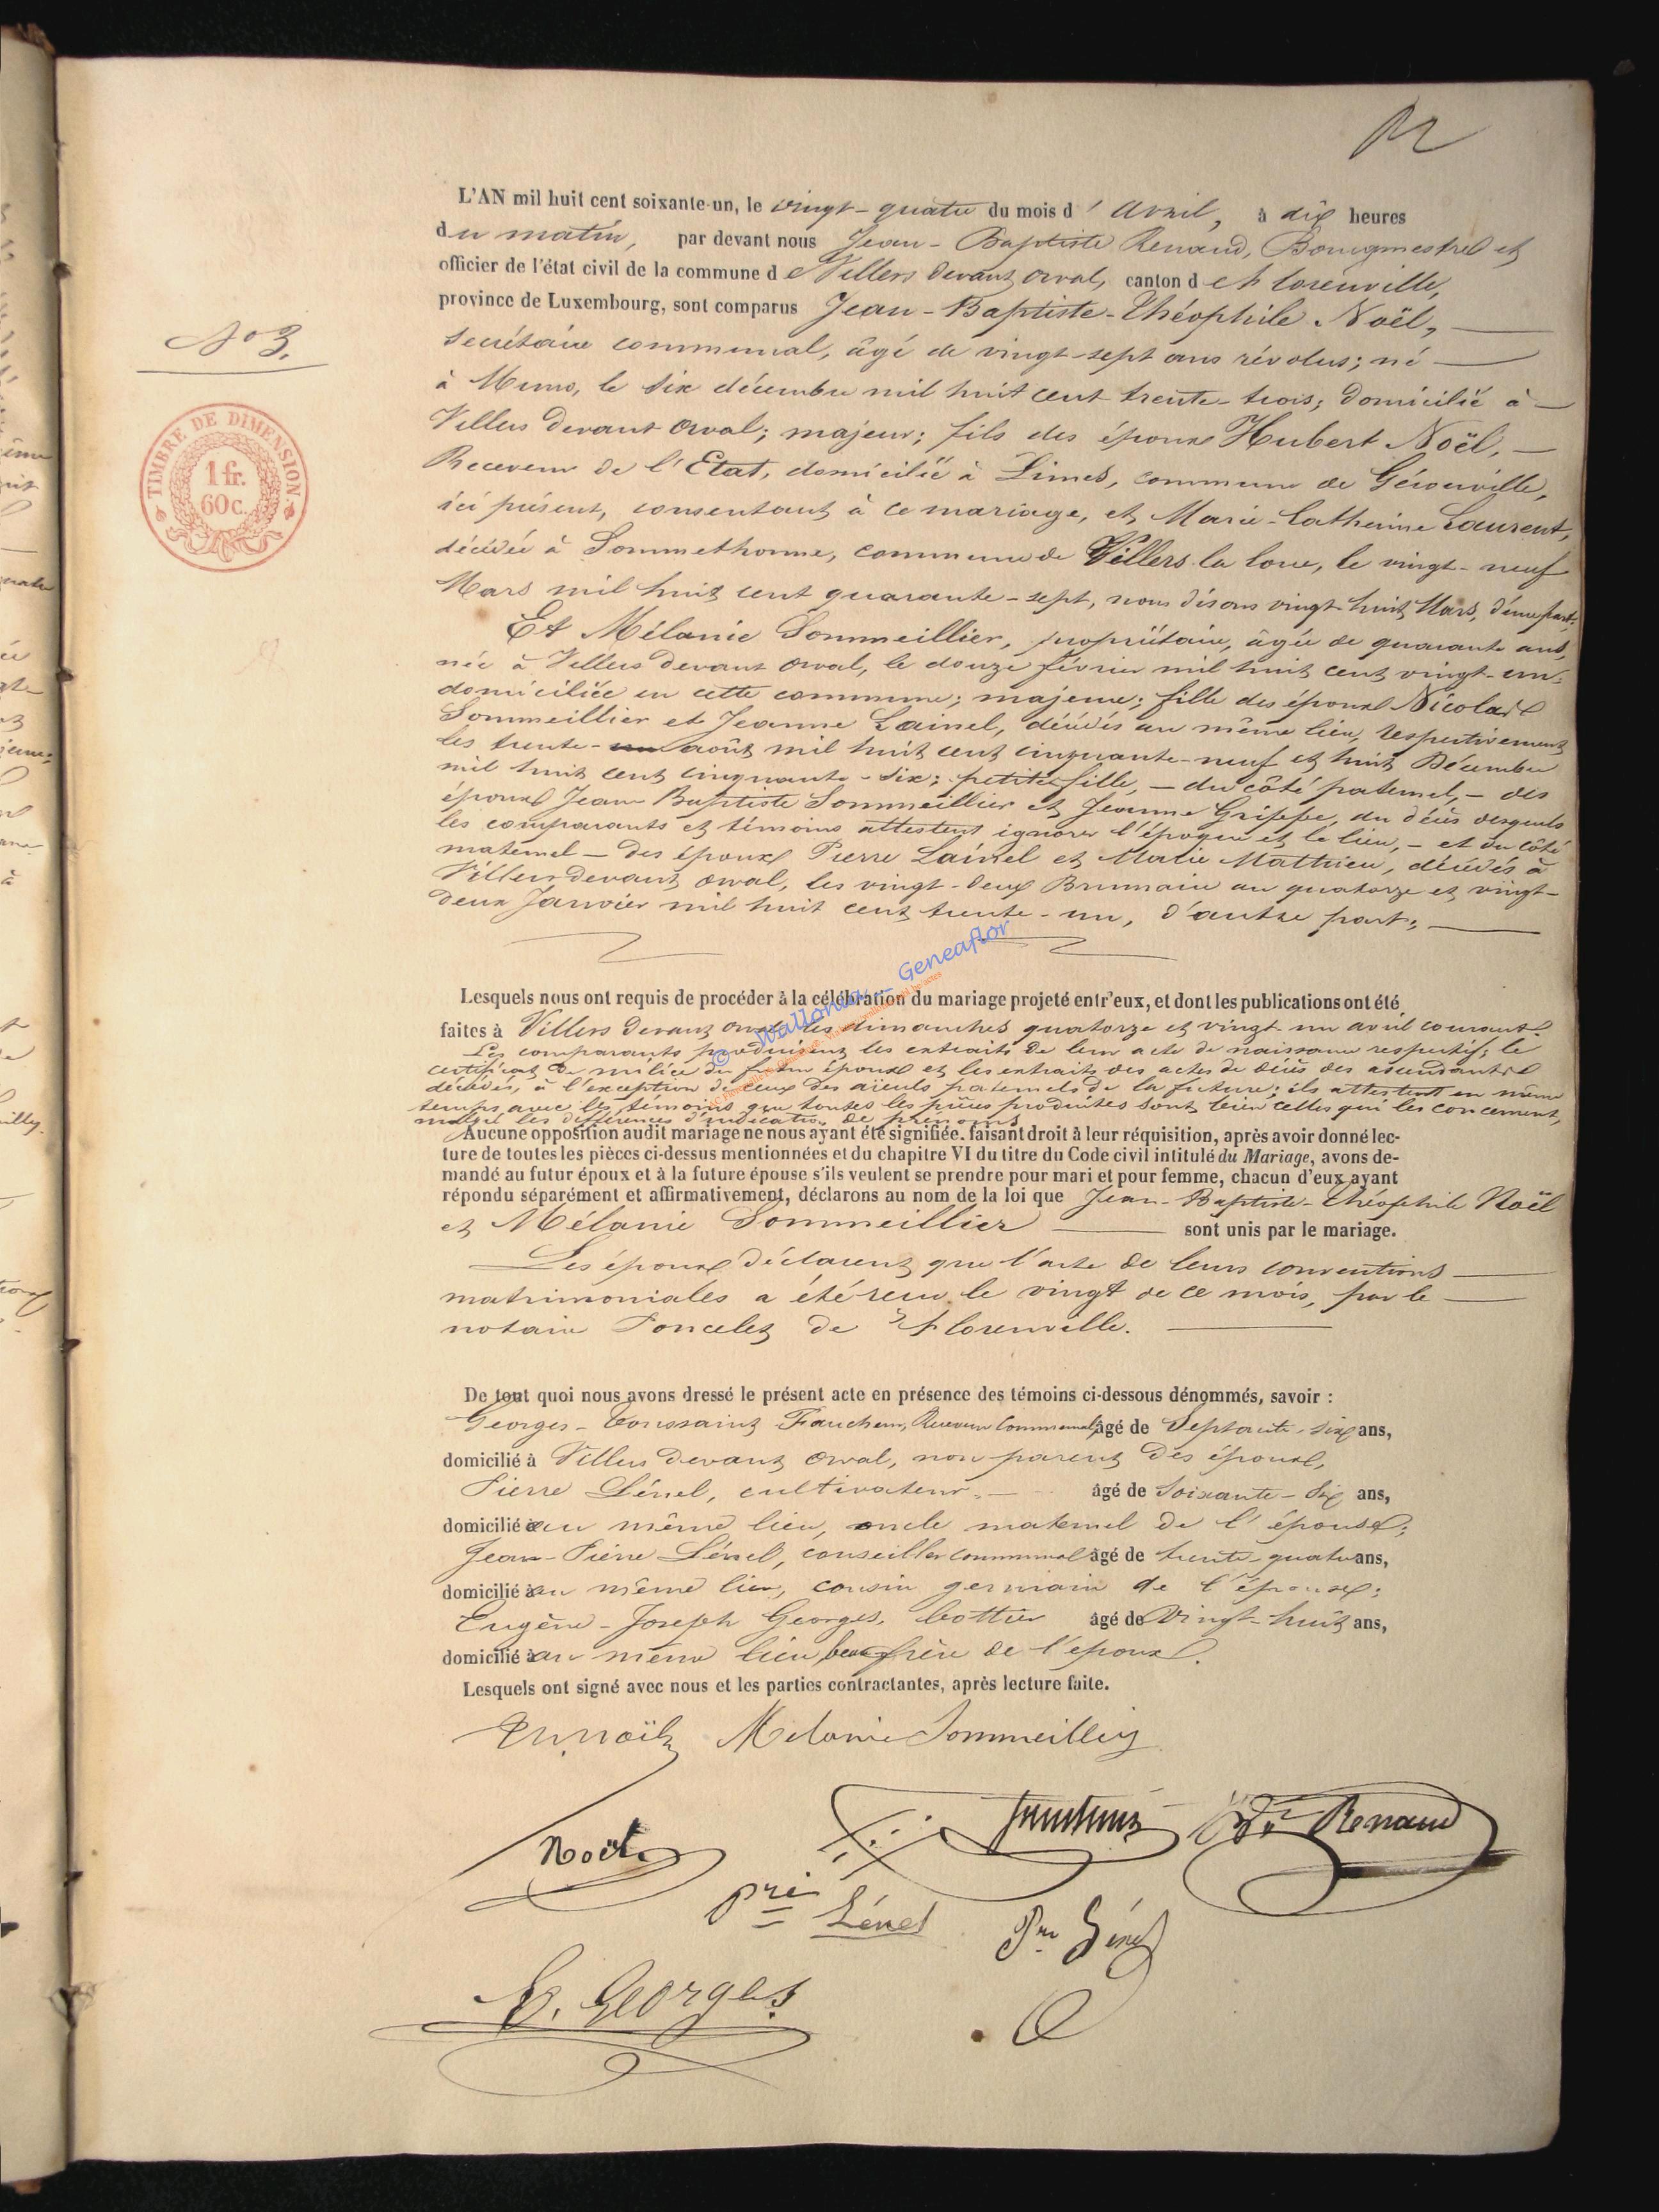 L'AN mil huit cent soixante-un, le vingt-quatre du mois d'Avril, à dix heures
du matin, par devant nous Jean-Baptiste Renaud, Bourgmestre et
officier de l'état civil de la commune de Villers devant Orval, canton de Florenville,
province de Luxembourg, sont comparus Jean-Baptiste-Théophile Noël,
N° 3.
Secrétaire communal, âgé de vingt-sept ans révolus; né
à Muno, le six décembre mil huit cent trente-trois; domicilié à
Villers devant Orval; majeur; fils des époux Hubert Noël,
Receveur de l'Etat, domicilié à Limes, commune de Gérouville,
ici présent, consentant à ce mariage, et Marie-Catherine Laurent,
décédée à Sommethonne, commune de Villers la loue, le vingt-neuf
Mars mil huit cent quarante-sept, nous disons vingt-huit Mars, d'une part;
Et Mélanie Sommeillier, propriétaire, âgée de quarante ans,
née à Villers devant Orval, le douze février mil huit cent vingt-un;
domiciliée en cette commune; majeure; fille des époux Nicolas
Sommeillier et Jeanne Lainel, décédés au même lieu, respectivement
les trente août mil huit cent cinquante-neuf et huit Décembre
mil huit cent cinquante-six; petite fille, - du côté paternel, - des
époux Jean Baptiste Sommeillier et Jeanne Grippe, du décès desquels
les comparants et témoins attestent ignorer l'époque et le lieu, - et du côté
maternel - des époux Pierre Lainel et Marie Mathieu, décédés à
Villers devant Orval, les vingt-deux Brumaire an quatorze et vingt-
deux Janvier mil huit cent trente-un, d'autre part;
TIMBRE DE DIMENSION.
1 fr.
60 c.
Lesquels nous ont requis de procéder à la célébration du mariage projeté entr'eux, et dont les publications ont été
faites à Villers devant Orval les dimanches quatorze et vingt-un avril courant.
Les comparants produisent les extraits de leur acte de naissance respectif; le
certificat de milice du futur époux et les extraits des actes de décès des ascendants
décédés, à l'exception de ceux des aïeuls paternels de la future; ils attestent en même
temps avec les témoins que toutes les pièces produites sont bien celles qui les concernent,
malgré les différences d'indication de prénoms
Aucune opposition audit mariage ne nous ayant été signifiée, faisant droit à leur réquisition, après avoir donné lec-
ture de toutes les pièces ci-dessus mentionnées et du chapitre VI du titre du Code civil intitulé du Mariage, avons de-
mandé au futur époux et à la future épouse s'ils veulent se prendre pour mari et pour femme, chacun d'eux ayant
répondu séparément et affirmativement, déclarons au nom de la loi que Jean-Baptiste-Théophile Noël
et Mélanie Sommeillier sont unis par le mariage.
Les époux déclarent que l'acte de leurs conventions
matrimoniales a été reçu le vingt de ce mois, par le
notaire Poncelet de Florenville.
De tout quoi nous avons dressé le présent acte en présence des témoins ci-dessous dénommés, savoir :
Georges-Toussaint Receveur Communal, âgé de Septante-six ans,
domicilié à Villers devant Orval, non parent des époux,
Pierre Lénel, cultivateur, âgé de Soixante-dix ans,
domicilié au même lieu, oncle maternel de l'épouse;
Jean-Pierre Lénel, conseiller communal âgé de trente-quatre ans,
domicilié au même lieu, cousin germain de l'épouse;
Eugène-Joseph Georges, bottier âgé de Vingt-huit ans,
domicilié au même lieu beau frère de l'époux.
Lesquels ont signé avec nous et les parties contractantes, après lecture faite.
Th. Noël Mélanie Sommeillier
Noël Renaud
Pre Lénel Pre Lénel
E. Georges
© Wallonia - Geneaflor